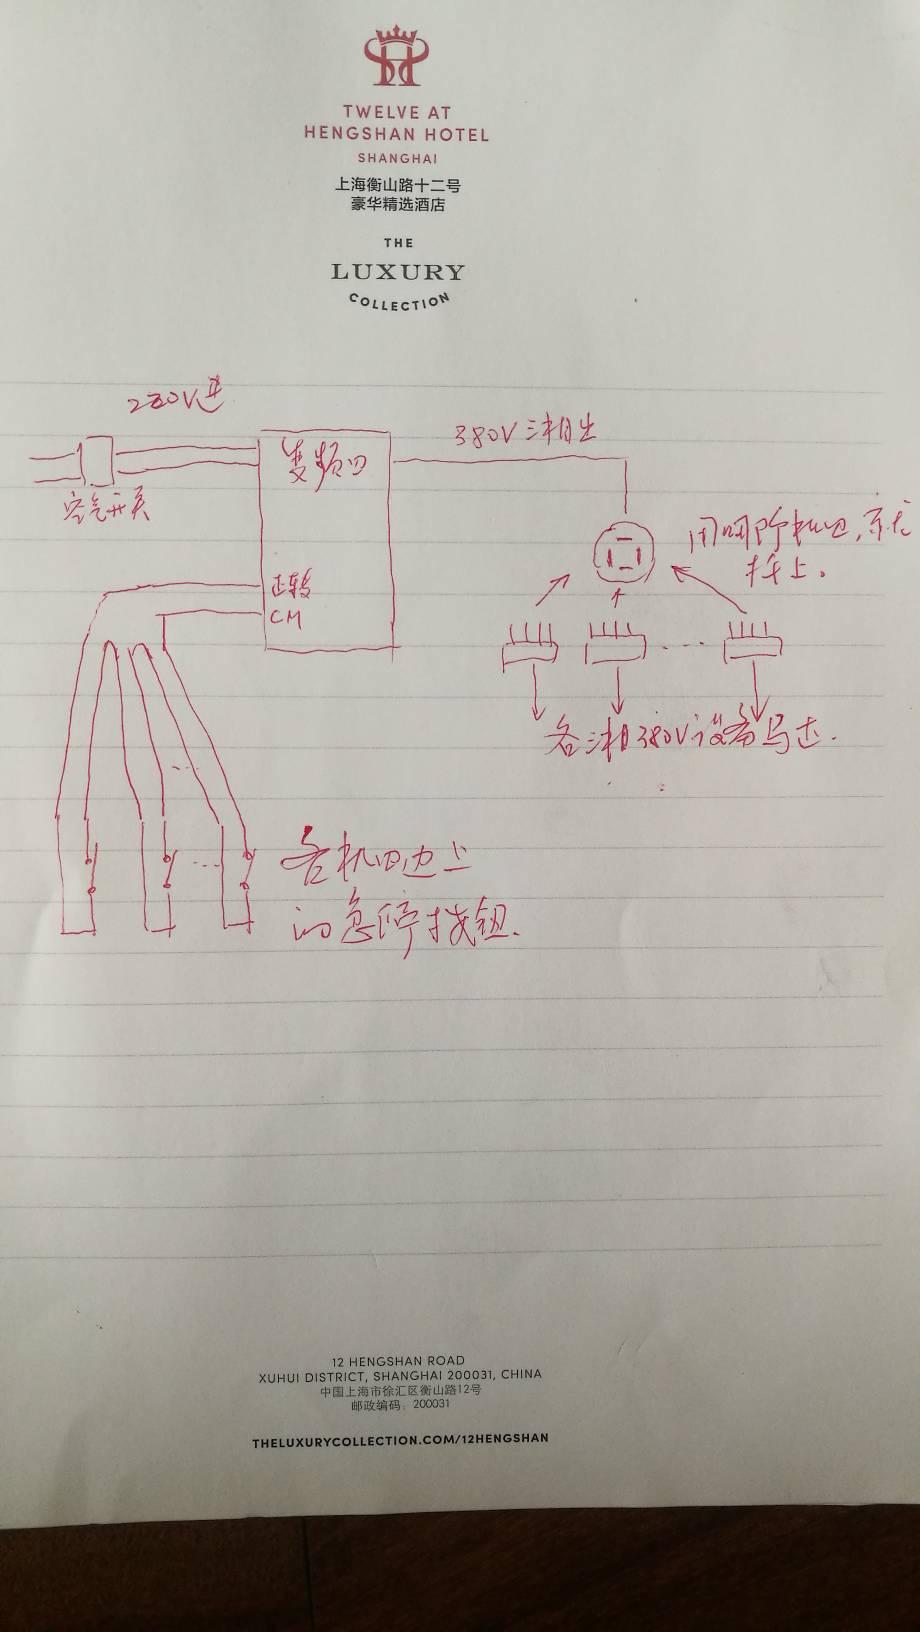 TWELVE AT
HENGSHAN HOTEL
SHANGHAI
上海衡山路十二号
豪华精选酒店
THE
LUXURY
COLLECTION
220V进
380V三相出
变频四
空气开关
用哪阶机四,就尢
挥上.
正转
CM
各三相380V设备马达.
各机四边上
的急停按钮.
12 HENGSHAN ROAD
XUHUI DISTRICT, SHANGHAI 200031, CHINA
中国上海市徐汇区衡山路12号
邮政编码: 200031
THELUXURYCOLLECTION.COM/12HENGSHAN